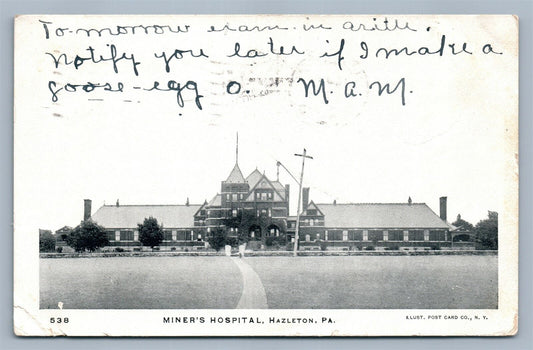 To-morrow exam in arith.
notify you later if I make a
goose-egg o. M. A. M.
538 MINER'S HOSPITAL, HAZLETON, PA. ILLUST. POST CARD CO., N. Y.